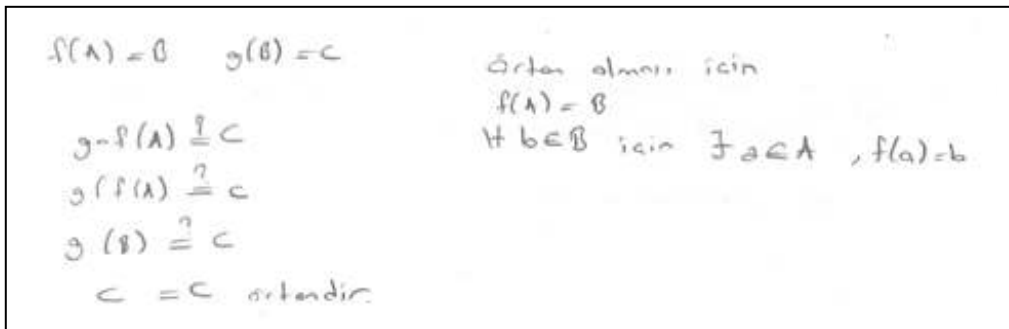 f(A) = B g(B) = C
g∘f(A) ≟ C
g(f(A) ≟ C
g(B) ≟ C
C = C örtendir.
örten olması için
f(A) = B
∀ b∈B için ∃ a∈A , f(a)=b